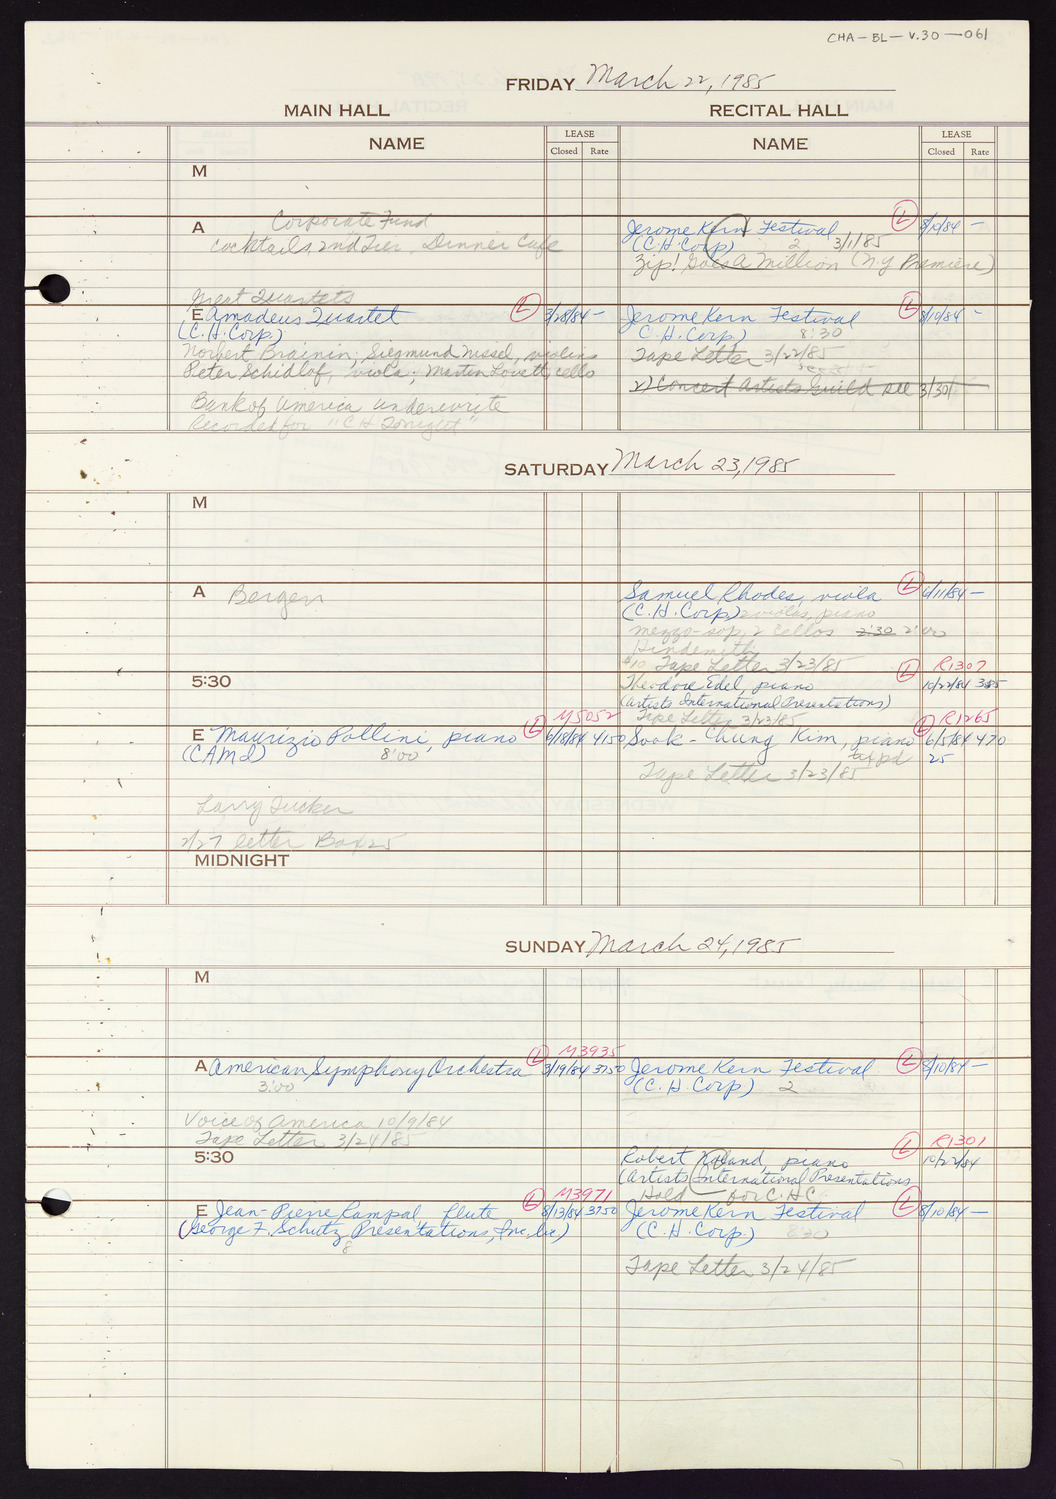 CHA-BL-V.30-061
FRIDAY March 22, 1985
MAIN HALL
RECITAL HALL
NAME
LEASE
Closed Rate
NAME
LEASE
Closed Rate
M
A
Corporate Fund
Cocktails 2nd Tier. Dinner Cafe
Jerome Kern Festival L 8/10/84 -
(C.H. Corp) 2 3/1/85
Zip! Goes A Million (N.Y Premiere)
Great Quartets
E Amadeus Quartet L 3/28/84 -
(C.H. Corp.)
Norbert Brainin, Siegmund Nissel, violins
Peter Schidlof, viola; Martin Lovett, cello
Bank of America underwrite
Recorded for "CH Tonight"
Jerome Kern Festival L 8/10/84 -
(C.H. Corp.) 8:30
Tape Letter 3/22/85
2) Concert Artists Guild see 3/30/
SATURDAY March 23, 1985
M
A Bergen
Samuel Rhodes, viola L 6/11/84 -
(C.H. Corp) 2 violas, piano
mezzo-sop, 2 cellos 2:30 2:00
Hindemith
$10 Tape Letter 3/23/85
5:30
L R1307
Theodore Edel, piano 10/22/84 385
(Artists International Presentations)
Tape Letter 3/23/85
L M5052
E Maurizio Pollini, piano 6/18/84 4150
(CAMI) 8:00
Larry Tucker
2/27 letter Box 25
L R1265
Sook-Chung Kim, piano 6/5/84 470
tax pd 25
Tape Letter 3/23/85
MIDNIGHT
SUNDAY March 24, 1985
M
L M3935
A American Symphony Orchestra 3/19/84 3750
3:00
Voice of America 10/9/84
Tape Letter 3/24/85
Jerome Kern Festival L 8/10/84 -
(C.H. Corp) 2
5:30
L R1301
Robert Noland, piano 10/22/84
(Artists International Presentations
Hold for C.H.C.
L M3971
E Jean-Pierre Rampal, flute 8/13/84 3750
(George F. Schutz Presentations, Inc.
8
Jerome Kern Festival L 8/10/84 -
(C.H. Corp.) 8:30
Tape Letter 3/24/85